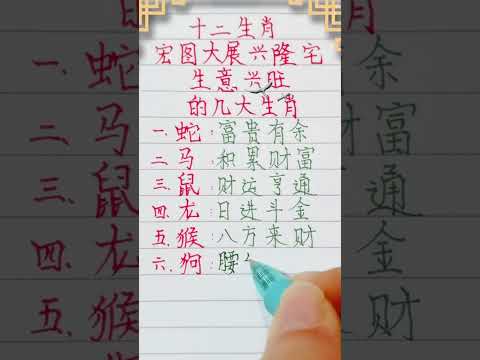 十二生肖
宏图大展兴隆宅
生意兴旺
的几大生肖
一.蛇:富贵有余
二.马:积累财富
三.鼠:财运亨通
四.龙:日进斗金
五.猴:八方来财
六.狗:腰